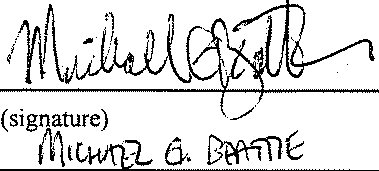 Michael G Beattie
(signature)
MICHAEL G. BEATTIE